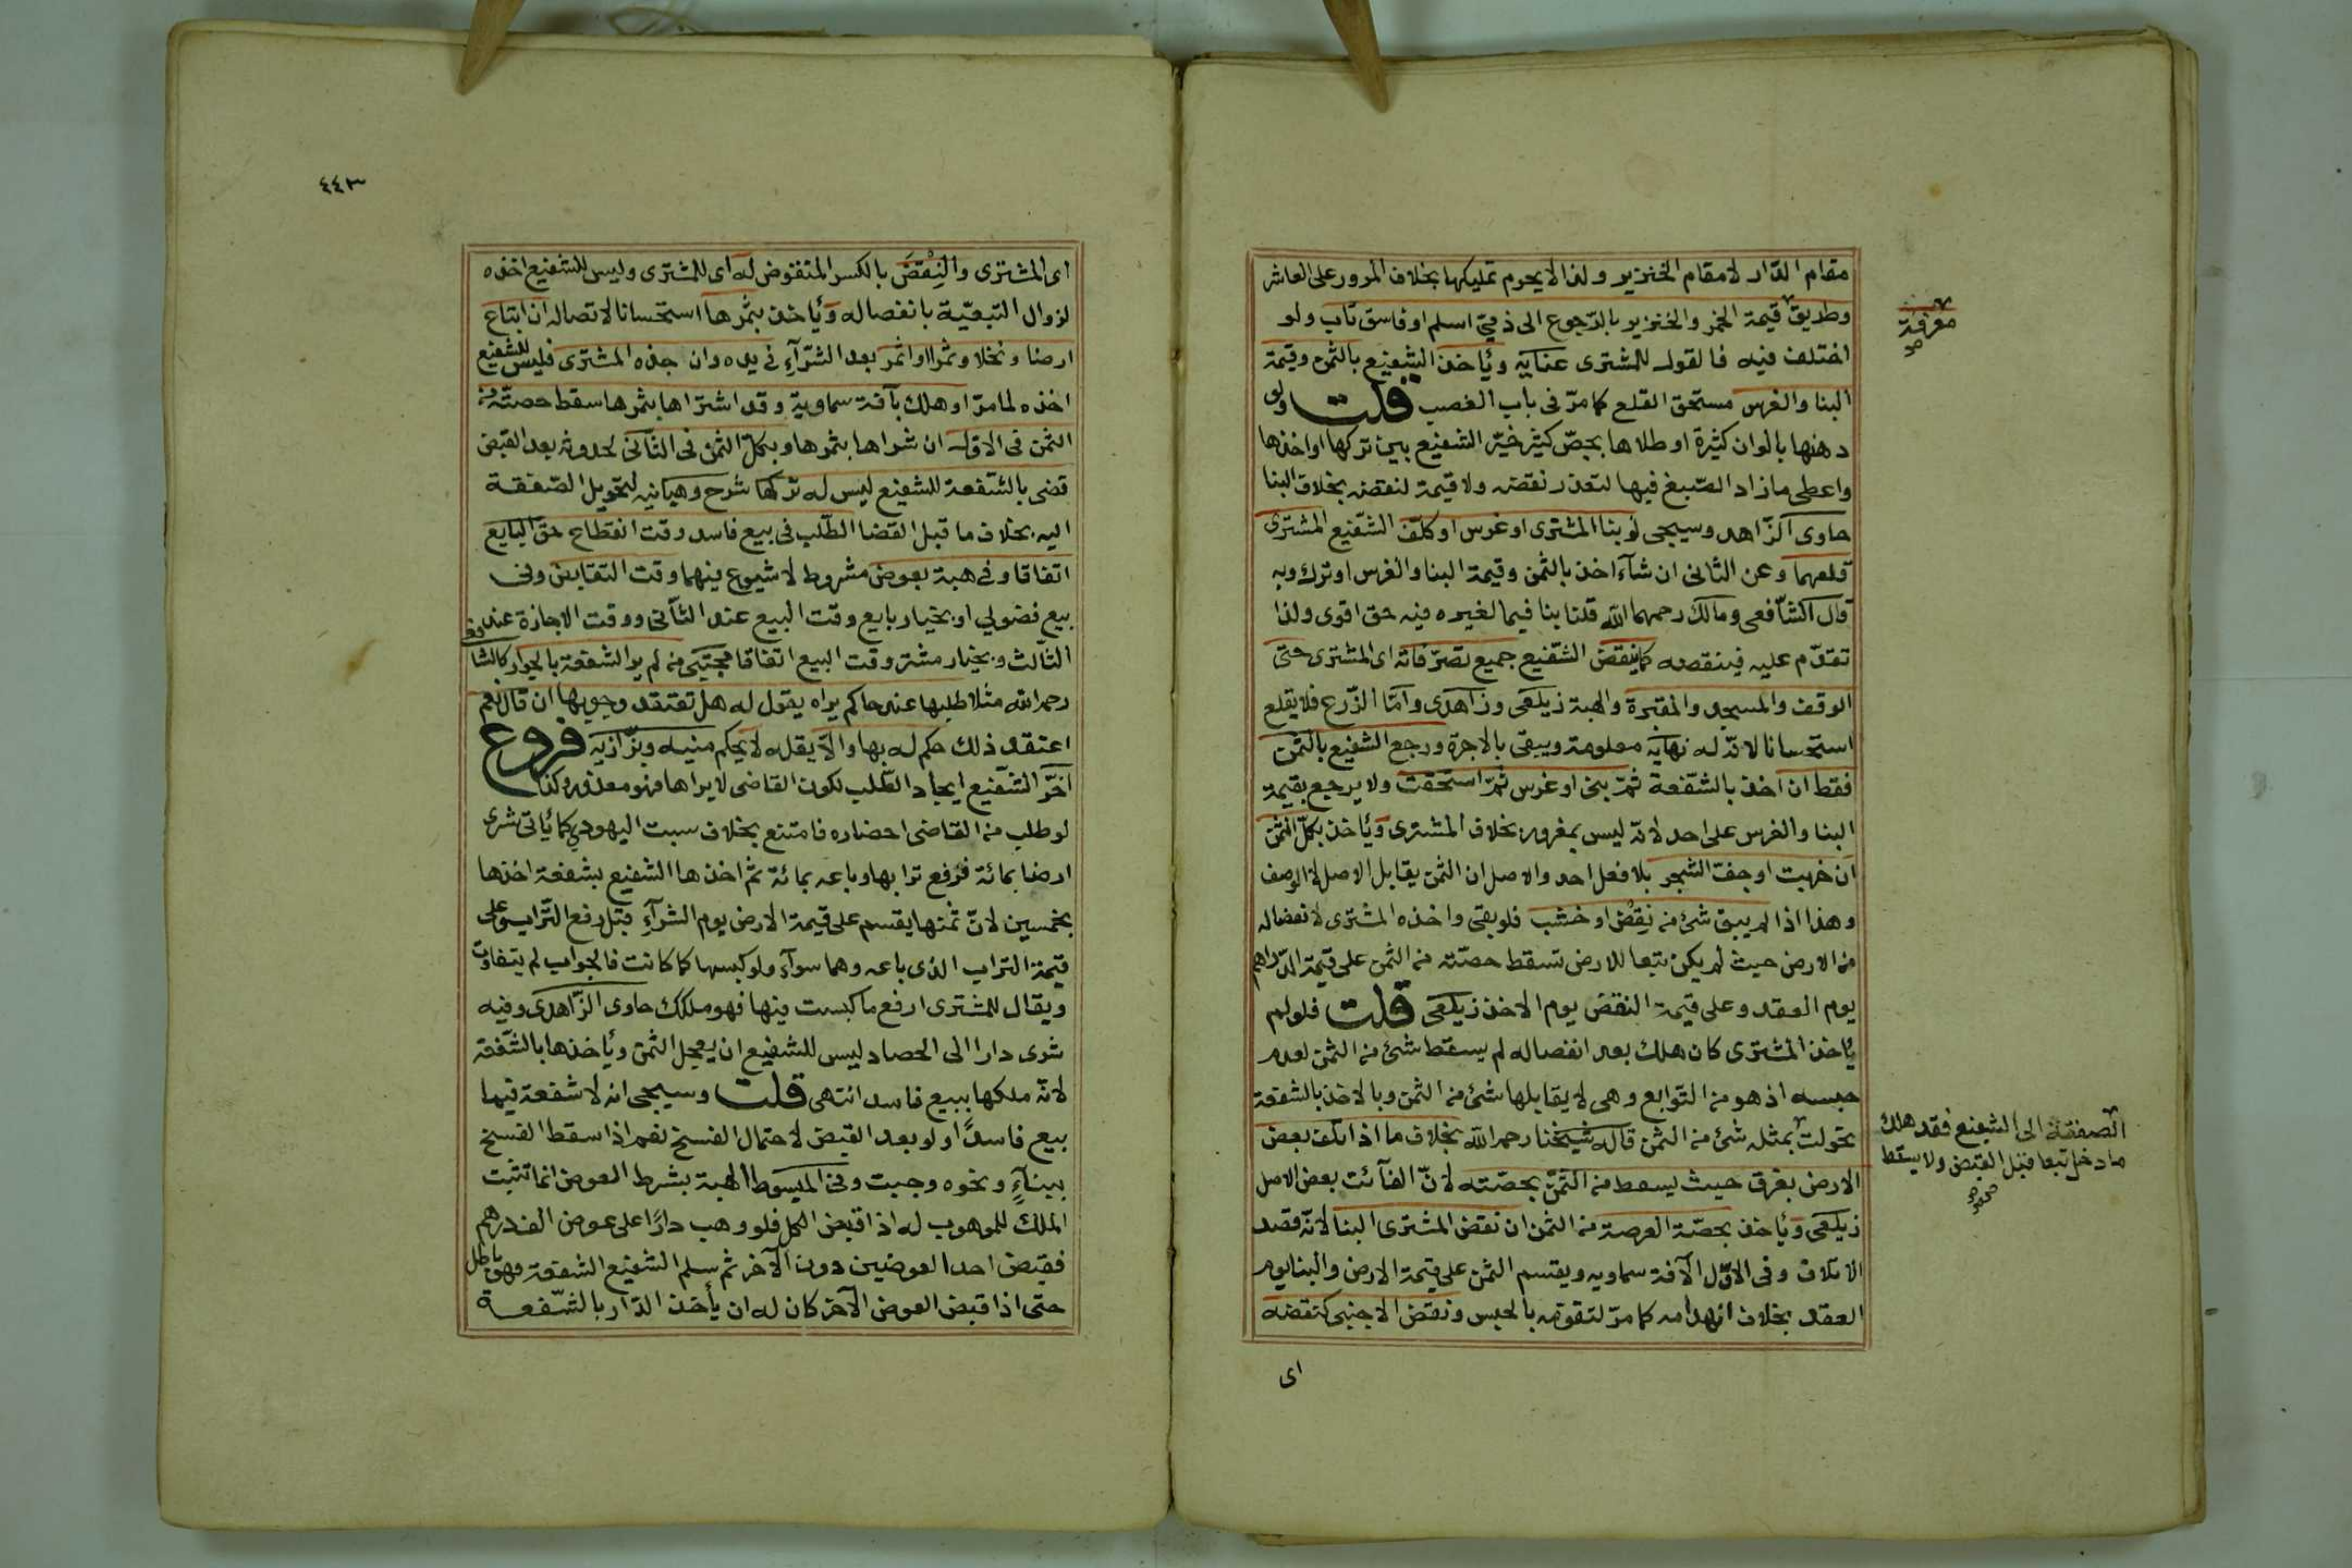 مقام الدار لا مقام الخنزير ولذا لا يحرم تمليكها بخلاف المرور على العاشر
وطريق قيمة الخمر والخنزير بالرجوع الى ذمي اسلم او فاسق تاب ولو
معرفة
صح
اختلف فيه فالقول للمشترى عنايه ويأخذ الشفيع بالثمن وقيمة
البنا والغرس مستحق القلع كما مرّ فى باب الغصب قلت ولو
دهنها بالوان كثيرة او طلاها بجصّ كثير خيّر الشفيع بين تركها او اخذها
واعطى ما زاد الصّبغ فيها لتعذر نقضه ولا قيمة لنقضه بخلاف البنا
حاوى الزّاهدى وسيجى لو بنا المشترى او غرس او كلّف الشّفيع المشترى
قلعهما وعن الثانى ان شآء اخذ بالثمن وقيمة البنا والغرس او ترك وبه
قال الشّافعى ومالك رحمهما الله قلنا بنا فيما لغيره فيه حق اقوى ولذا
تقدّم عليه فينقضه كما ينقض الشّفيع جميع تصرّفاته اى المشترى حتى
الوقف والمسجد والمقبرة والهبة زيلعى وزاهدى وامّا الزّرع فلا يقلع
استحسانا لانّ له نهاية معلومة ويبقى بالاجرة ورجع الشفيع بالثمن
فقط ان اخذ بالشّفعة ثمّ بنى او غرس ثمّ استحقت ولا يرجع بقيمة
البنا والغرس على احد لانّه ليس بمغرور بخلاف المشترى ويأخذ بكلّ الثمن
ان خربت او جفّ الشجر بلا فعل احد والاصل ان الثمن يقابل الاصل لا الوصف
وهذا اذا لم يبق شئ من نقض او خشب فلو بقى واخذه المشترى لانفصاله
من الارض حيث لم يكن تبعا للارض تسقط حصّته من الثمن على قيمة الدّراهم
يوم العقد وعلى قيمة النقض يوم الاخذ زيلعى قلت فلو لم
يأخذ المشترى كان هلك بعد انفصاله لم يسقط شئ من الثمن لعدم
حبسه اذ هو من التوابع وهى لا يقابلها شئ من الثمن وبالاخذ بالشفعة
تحولت بمثله شئ من الثمن قاله شيخنا رحمه الله بخلاف ما اذا تلف بعض
الصفقة الى الشفيع فقد هلك
ما دخل تبعا قبل القبض ولا يسقط
صح
الارض بغرق حيث يسقط من الثّمن بحصّته لانّ الفآئت بعض الاصل
زيلعى ويأخذ بحصّة العرصة من الثمن ان نقض المشترى البنا لانّه قصد
الاتلاف وفى الاوّل الآفة سماويه ويقسم الثمن على قيمة الارض والبنا يوم
العقد بخلاف انهدامه كما مرّ لتقوّمه بالحبس ونقض الاجنبى كنقضه
اى
٤٤٣
اى المشترى والنِقْضَ بالكسر المنقوض له اى للمشترى وليس للشفيع اخذه
لزوال التبعيّة بانفصاله ويأخذ بثمرها استحسانا لاتصاله ان ابتاع
ارضا ونخلا وثمرا او اثمر بعد الشّرآء فى يده وان جذه المشترى فليس للشفيع
اخذه لما مرّ او هلك بآفة سماويّة وقد اشتراها بثمرها سقط حصّته من
الثمن فى الاول ان شراها بثمرها وبكلّ الثمن فى الثّانى لحدوثه بعد القبض
قضى بالشّفعة للشفيع ليس له تركها شرح وهبانيه لتحويل الصّفقة
اليه بخلاف ما قبل القضا الطّلب فى بيع فاسد وقت انقطاع حق البايع
اتفاقا وفى هبة بعوض مشروط لا شيوع فيهما وقت التقابض وفى
بيع فضولي او بخيار بايع وقت البيع عند الثّانى ووقت الاجازة عند
الثّالث وبخيار مشتر وقت البيع اتفاقا مجتبى من لم ير الشفعة بالجوار كالشافعى
رحمه الله مثلا طلبها عند حاكم يراه يقول له هل تعتقد وجوبها ان قال نعم
اعتقد ذلك حكم له بها والّا يقله لا يحكم منيه وبزّازيه فروع
اخّر الشّفيع ايجاد الطّلب لكون القاضى لا يراها فهو معذور وكذا
لو طلب من القاضى احضاره فامتنع بخلاف سبت اليهودي كما يأتى شرى
ارضا بمائة فرفع ترابها وباعه بمائة ثم اخذها الشفيع بشفعة اخذها
بخمسين لانّ ثمنها يقسم على قيمة الارض يوم الشرآء قبل رفع التّراب وعلى
قيمة التراب الذى باعه وهما سوآء ولو كبسها كما كانت فالجواب لم يتفاوت
ويقال للمشترى ارفع ما كبست فيها فهو ملكك حاوى الزّاهدى وفيه
شرى دارا الى الحصاد ليس للشفيع ان يعجل الثمن ويأخذها بالشّفعة
لانّه ملكها ببيع فاسد انتهى قلت وسيجى انه لا شفعة فيما
بيع فاسدًا ولو بعد القبض لاحتمال الفسخ نعم اذا سقط الفسخ
ببنآءٍ ونحوه وجبت وفى المبسوط الهبة بشرط العوض انما تثبت
الملك للموهوب له اذا قبض الكل فلو وهب دارًا على عوض الف درهم
فقبض احد العوضين دون الآخر ثم سلم الشفيع الشفعة فهو باطل
حتى اذا قبض العوض الآخر كان له ان يأخذ الدّار بالشّفعة